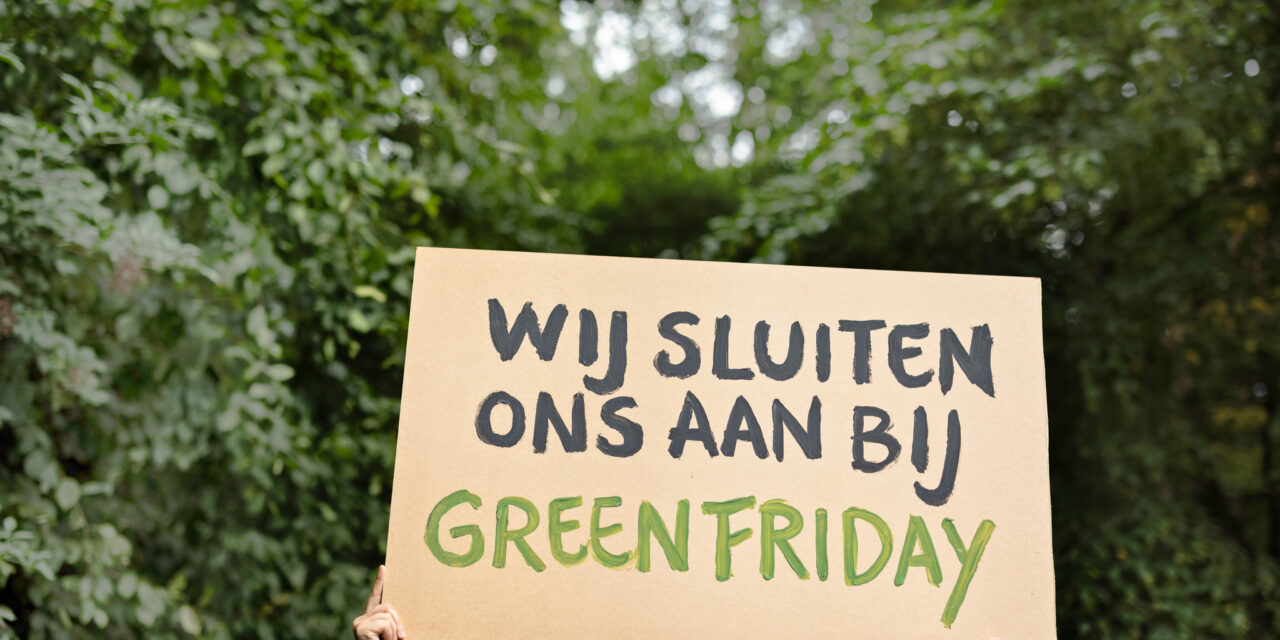 WIJ SLUITEN
ONS AAN BIJ
GREEN FRIDAY